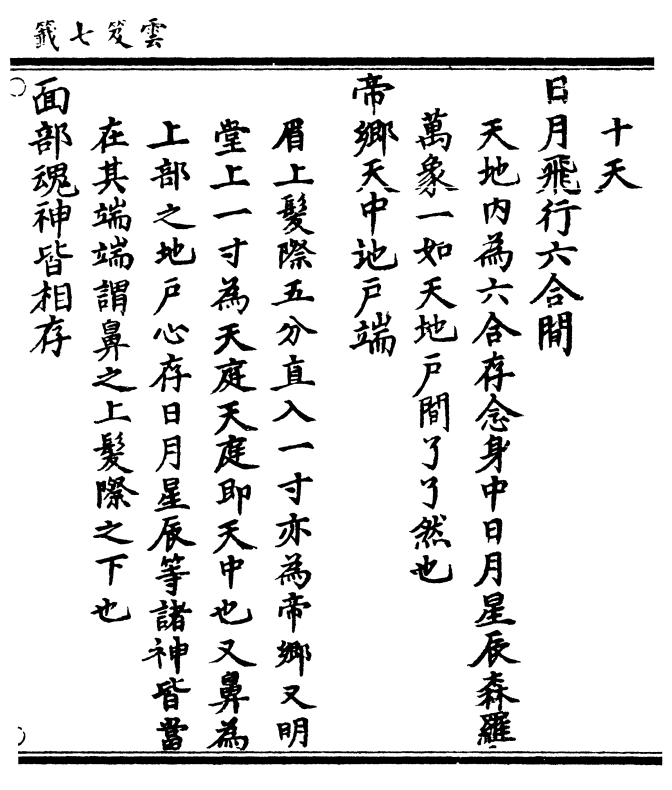 雲笈七籤
十天
日月飛行六合間
天地內為六合存念身中日月星辰森羅
萬象一如天地戶間了了然也
帝鄉天中地戶端
眉上髮際五分直入一寸亦為帝鄉又明
堂上一寸為天庭天庭即天中也又鼻為
上部之地戶心存日月星辰等諸神皆當
在其端端謂鼻之上髮際之下也
面部魂神皆相存